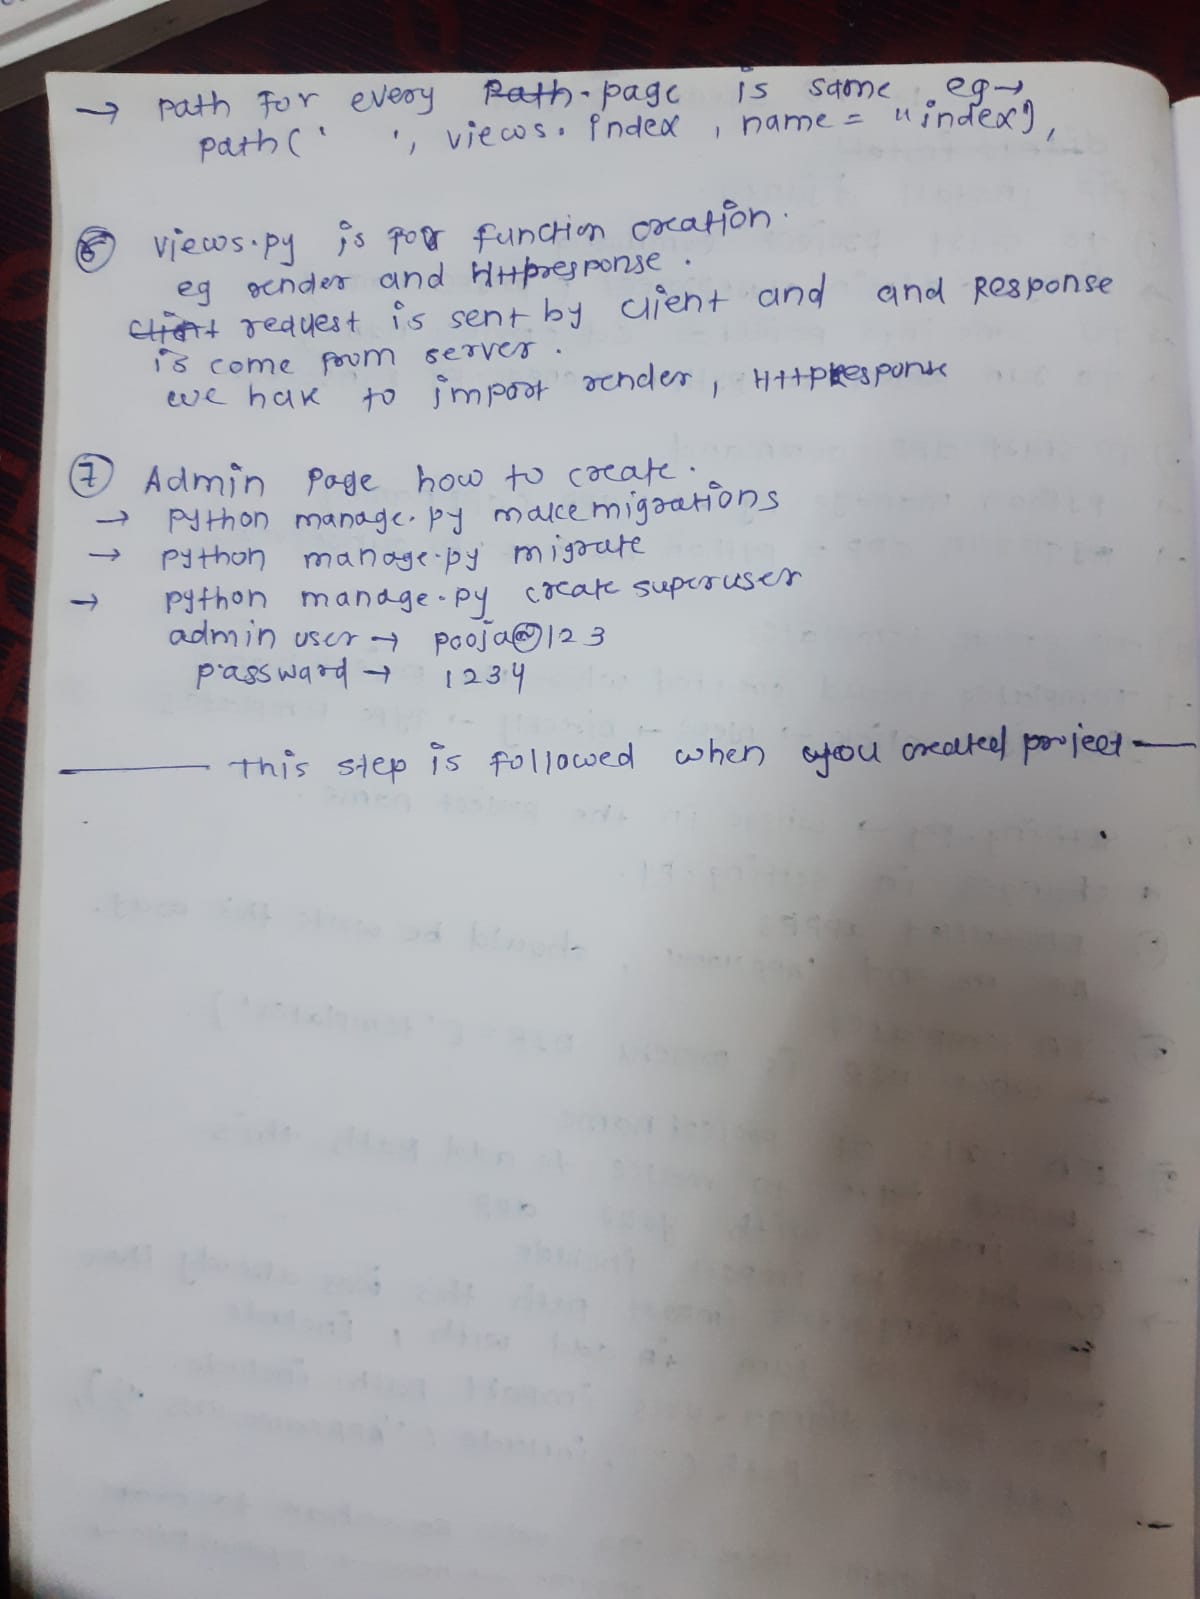 → path for every page is same eg→
path(' ', views. index , name = "index"),
⑥ views.py is for function creation.
eg render and Httpresponse .
request is sent by client and and Response
is come from server .
we have to import render, HttpResponse
⑦ Admin page how to create.
→ python manage.py makemigrations
→ python manage.py migrate
→ python manage.py create superuser
admin user → pooja@123
passward → 1234
this step is followed when you created project